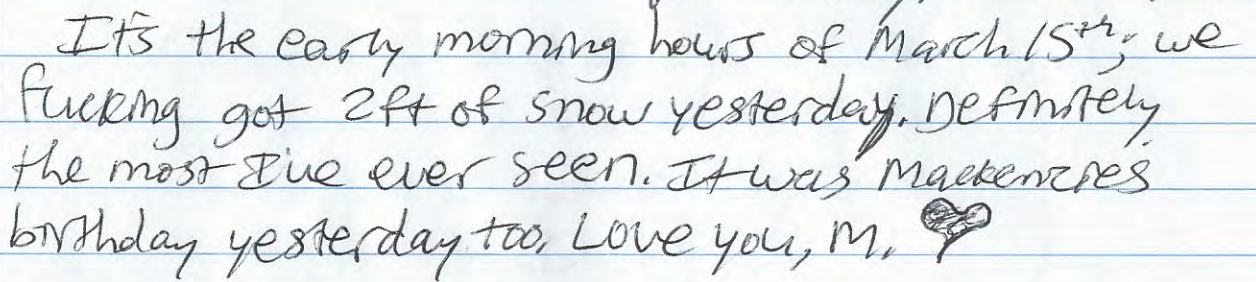 It's the early morning hours of March 15th; we
fucking got 2ft of snow yesterday. Definitely
the most I've ever seen. It was Mackenzies
birthday yesterday too. Love you, M. ♥